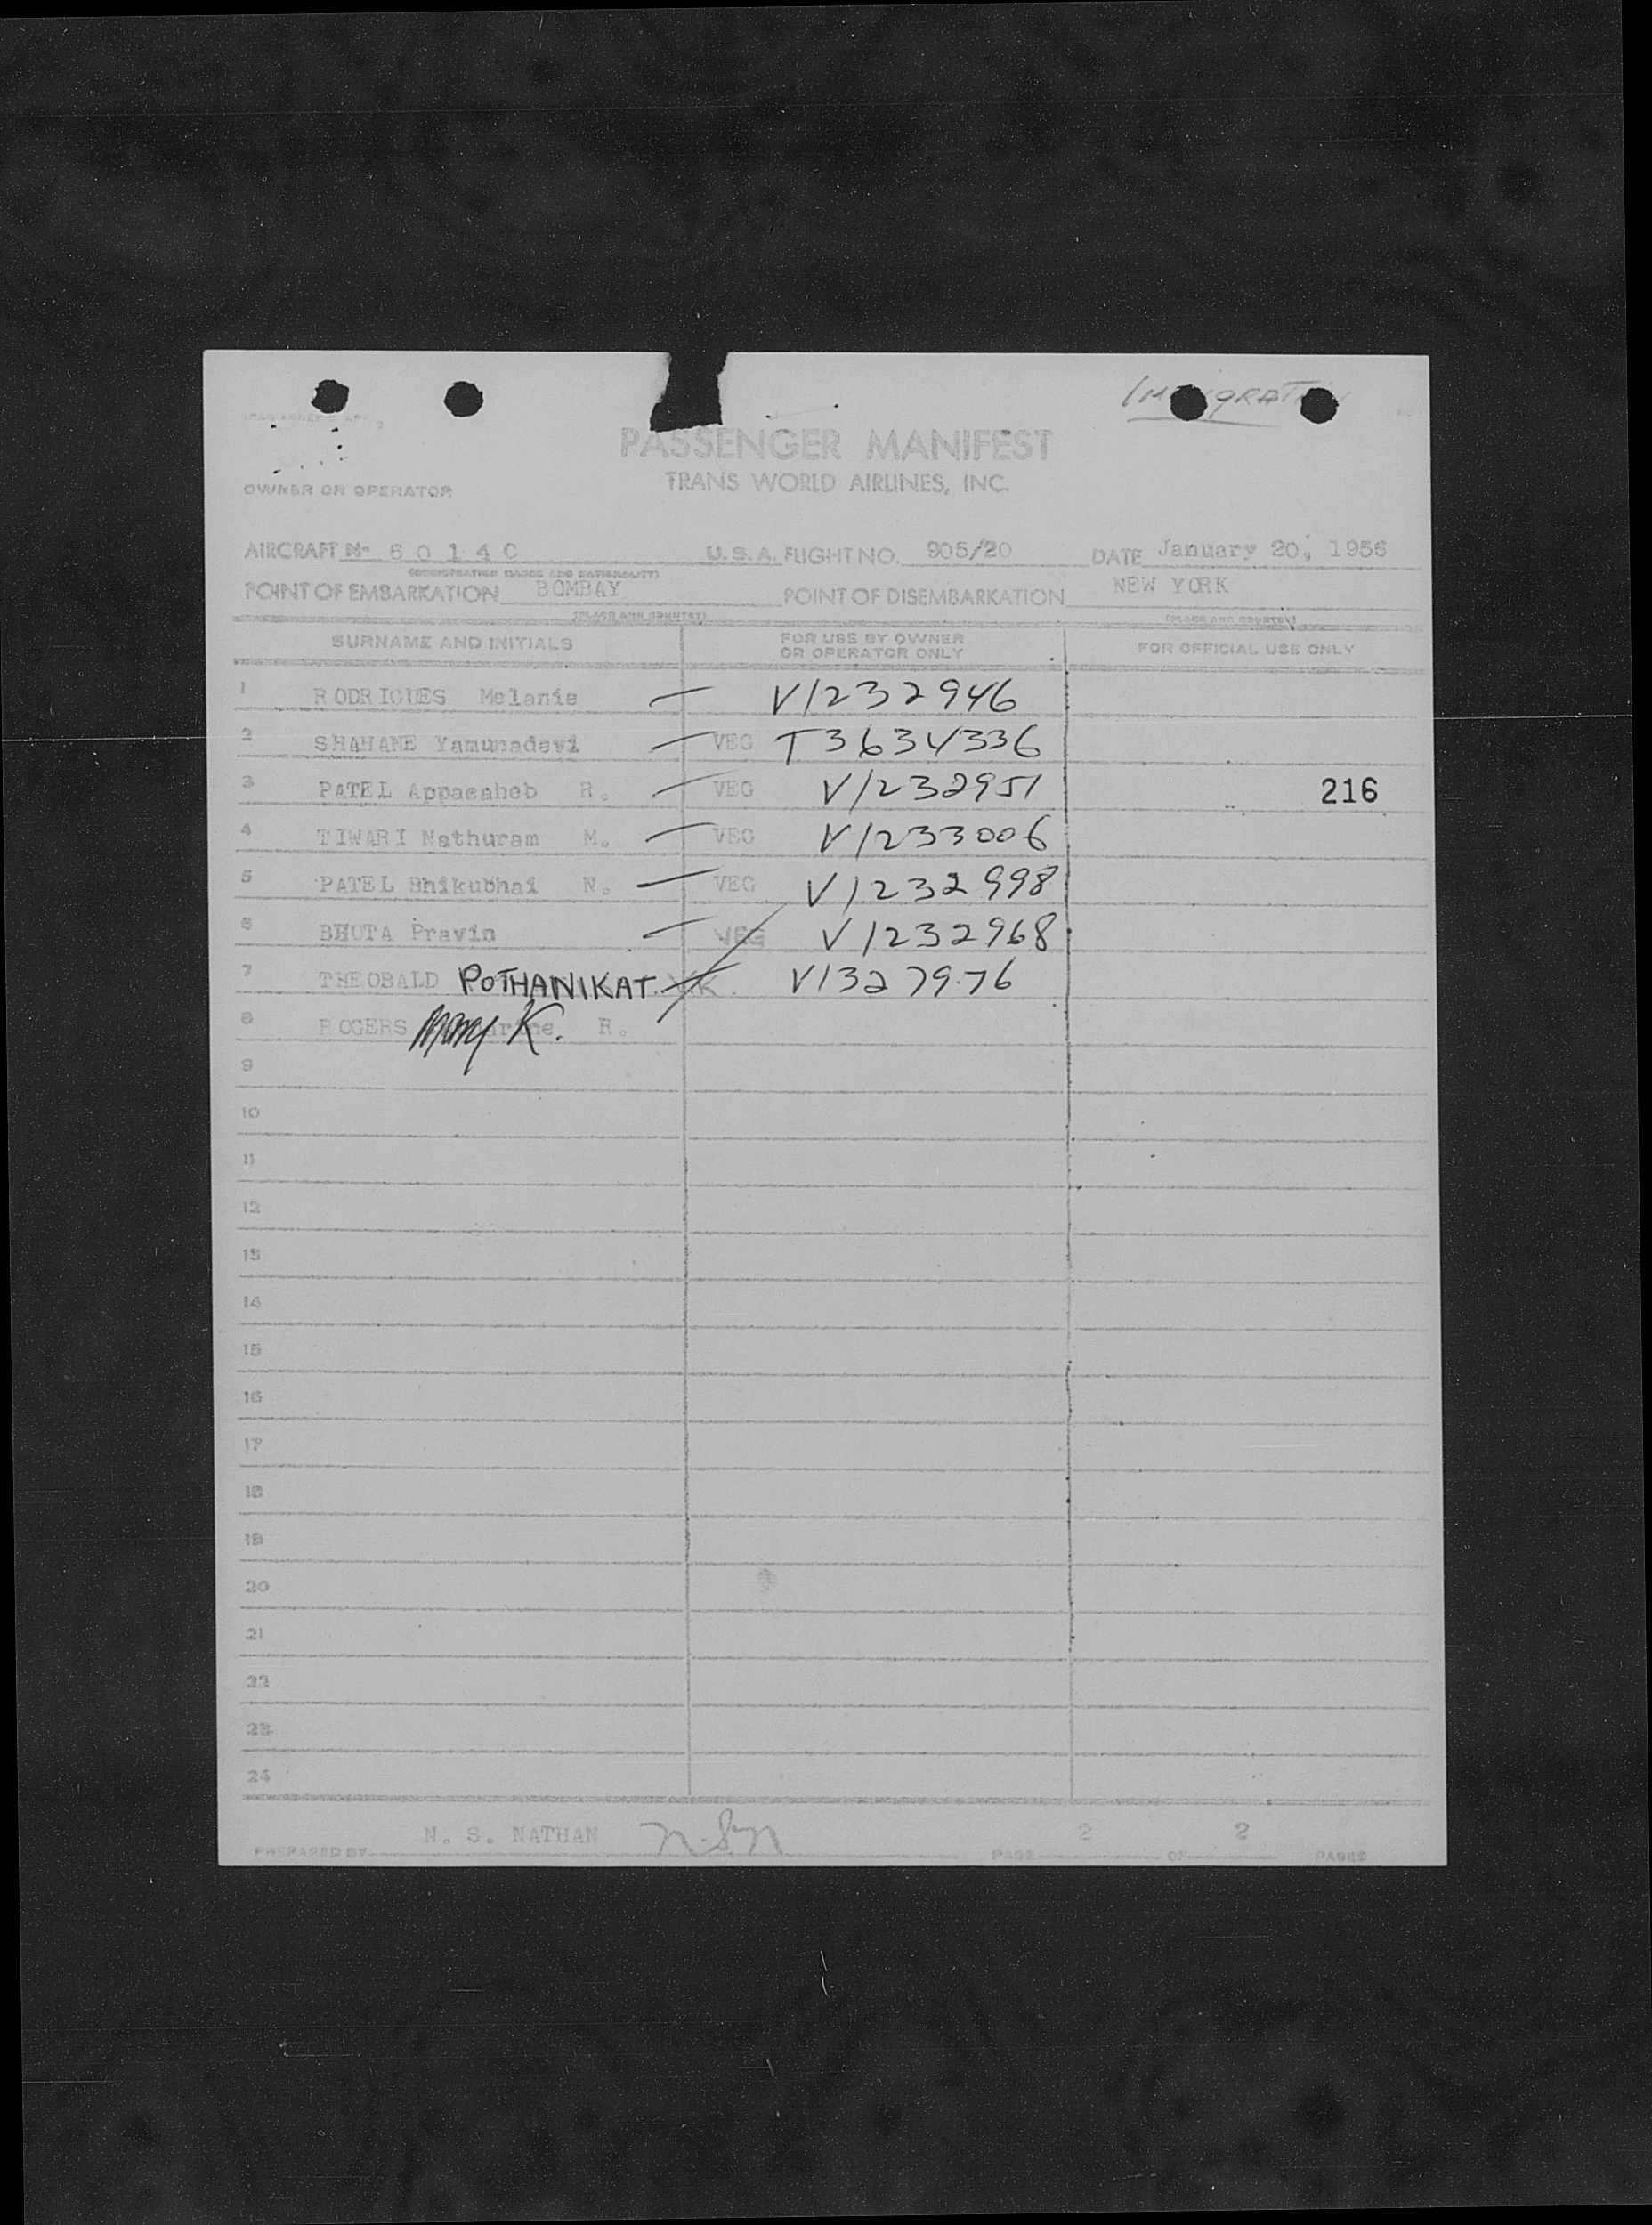 IMMIGRATION
PASSENGER MANIFEST
TRANS WORLD AIRLINES, INC.
OWNER OR OPERATOR
AIRCRAFT No 6 0 1 4 C U.S.A. FLIGHT NO. 905/20 DATE January 20, 1956
(REGISTRATION MARKS AND NATIONALITY)
POINT OF EMBARKATION BOMBAY POINT OF DISEMBARKATION NEW YORK
(PLACE AND COUNTRY) (PLACE AND COUNTRY)
SURNAME AND INITIALS FOR USE BY OWNER OR OPERATOR ONLY FOR OFFICIAL USE ONLY
1 RODRIGUES Melanie — V1232946
2 SHAHANE Yamunadevi — VEG T3634336
3 PATEL Appasaheb R. — VEG V1232951 216
4 TIWARI Nathuram M. — VEG V1233006
5 PATEL Bhikubhai N. — VEG V1232998
6 BHUTA Pravin — VEG V1232968
7 THEOBALD POTHANIKAT V1327976
8 ROGERS Mary K. R.
9
10
11
12
13
14
15
16
17
18
19
20
21
22
23
24
PREPARED BY N. S. NATHAN n.S.n PAGE 2 OF 2 PAGES